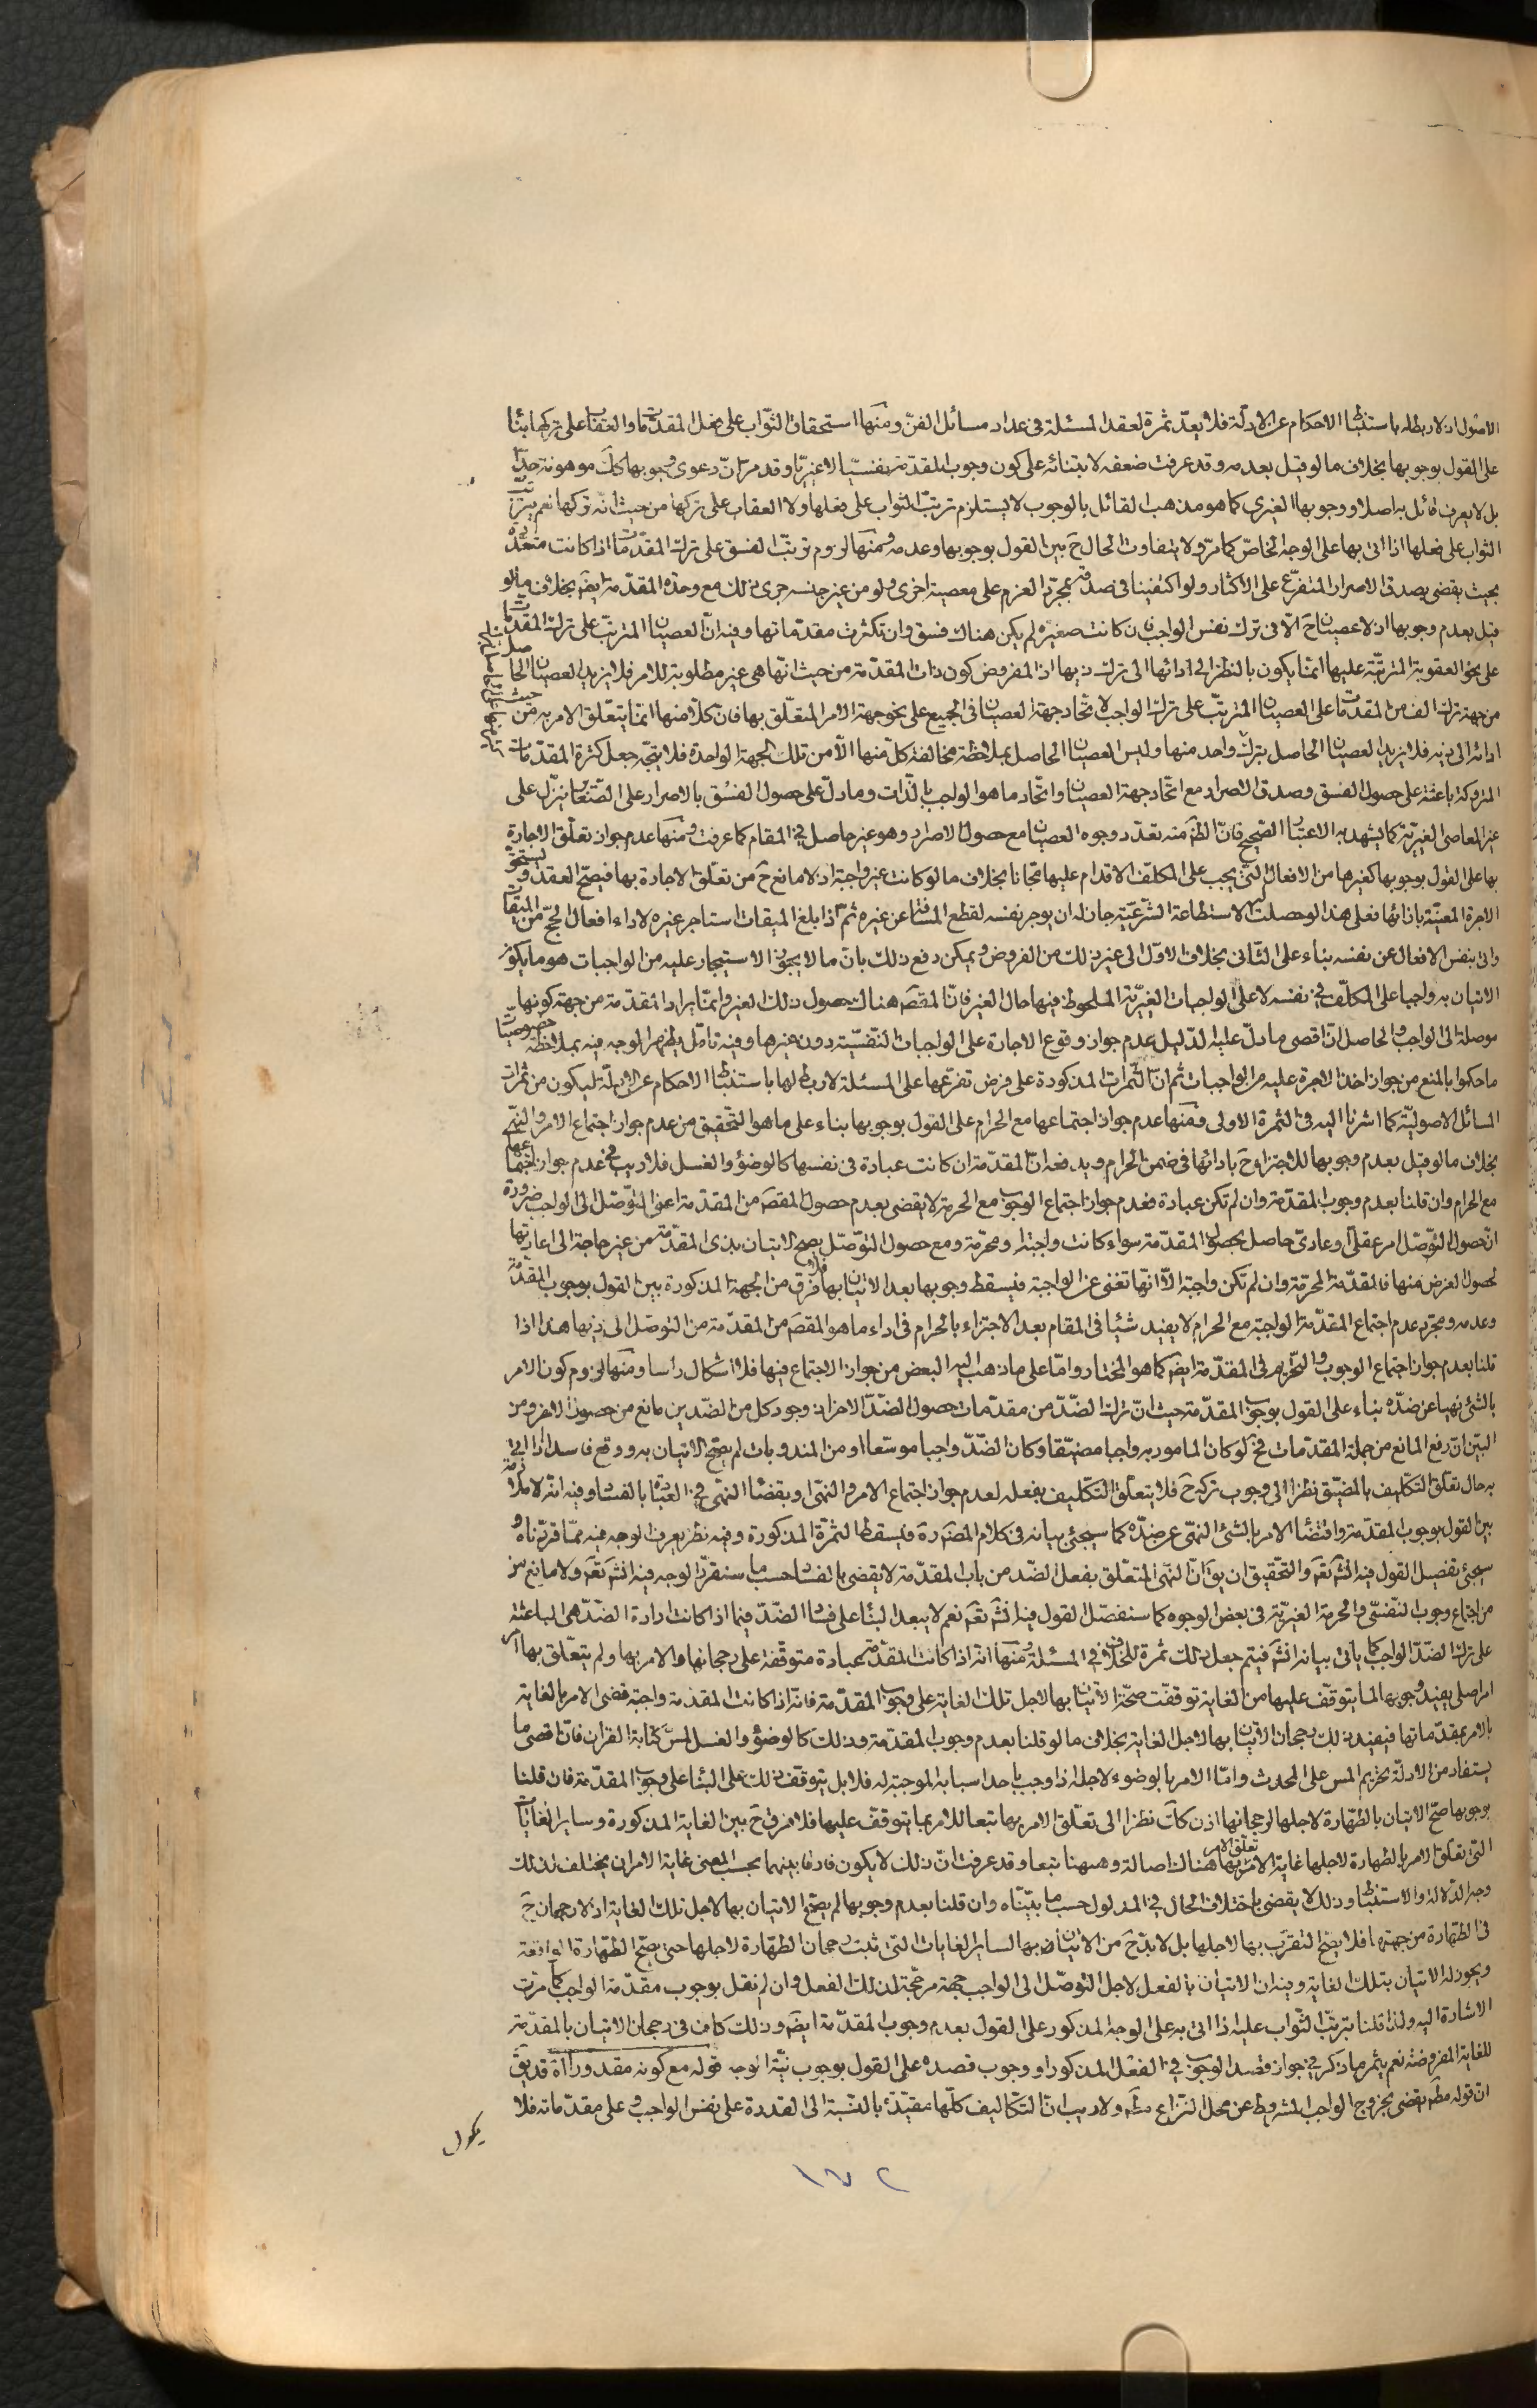 الاصول اذ لا ربط له باستنباط الاحكام عن الادلّة فلا يعدّ ثمرة لعقد المسئلة فى عداد مسائل الفنّ ومنها استحقاق الثّواب على فعل المقدّمات والعقاب على تركها بناء
على القول بوجوبها بخلاف ما لو قيل بعدمه وقد عرفت ضعفه لابتنائه على كون وجوب المقدّمة نفسيّا لا غيريّا وقد مرّ انّ دعوى وجوبها كك موهونة جدّا
بل لا يعرف قائل به اصلا ووجوبها الغيرى كما هو مذهب القائل بالوجوب لا يستلزم ترتّب الثواب على فعلها ولا العقاب على تركها من حيث انّه تركها نعم يترتّب
الثواب على فعلها اذا اتى بها على الوجه الخاصّ كما مرّ ولا يتفاوت الحال ح بين القول بوجوبها وعدمه ومنها لزوم ترتّب الفسق على ترك المقدّمات اذا كانت متعدّدة
بحيث يقضى بصدق الاصرار المتفرّع على الاكثار ولو اكتفينا فى صدقه بمجرّد العزم على معصية اخرى ولو من غير جنسه جرى ذلك مع وحدة المقدّمة ايضا بخلاف ما لو
قيل بعدم وجوبها اذ لا عصيان ح الّا فى ترك نفس الواجب فان كانت صغيرة لم يكن هناك فسق وان تكثرت مقدّماتها وفيه انّ العصيان المترتّب على ترك المقدّمات
على نحو العقوبة المترتّبة عليها انّما يكون بالنظر الى ادائها الى ترك ذيها اذ المفروض كون ذات المقدّمة من حيث انّها هى غير مطلوبة للامر فلا يزيد العصيان الحاصل
من جهة ترك الف من المقدّمات على العصيان المترتّب على ترك الواجب لاتّحاد جهة العصيان فى الجميع على نحو جهة الامر المتعلّق بها فانّ كلّا منها انّما يتعلّق الامر به من حيث
ادائه الى ذيه فلا يزيد العصيان الحاصل بترك واحد منها وليس العصيان الحاصل بملاحظة مخالفة كلّ منها الّا من تلك الجهة الواحدة فلا يتّجه جعل كثرة المقدّمات
المتروكة باعثة على حصول الفسق وصدق الاصرار مع اتّحاد جهة العصيان واتّحاد ما هو الواجب بالذّات وما دلّ على حصول الفسق بالاصرار على الصّغائر ينزّل على
غير المعاصى الغيريّة كما يشهد به الاعتبار الصّحيح فانّ الظّ منه تعدّد وجوه العصيان مع حصول الاصرار وهو غير حاصل فى المقام كما عرفت ومنها عدم جواز تعلّق الاجارة
بها على القول بوجوبها كغيرها من الافعال الّتى يجب على المكلّف الاقدام عليها مجّانا بخلاف ما لو كانت غير واجبة اذ لا مانع ح من تعلّق الاجارة بها فيصحّ العقد ويستحقّ
الاجرة المعيّنة بازائها فعلى هذا لو حصلت له الاستطاعة الشّرعيّة جاز له ان يوجر نفسه لقطع المسافة عن غيره ثمّ اذا بلغ الميقات استاجر غيره لاداء افعال الحجّ من الميقات
واتى بنفس الافعال عن نفسه بناء على الثّانى بخلاف الاوّل الى غير ذلك من الفروض ويمكن دفع ذلك بان ما لا يجوز الاستيجار عليه من الواجبات هو ما يكون
الاتيان به واجبا على المكلّف فى نفسه لا على الواجبات الغيريّة الملحوظ فيها حال الغير فانّ المقصَ هناك حصول ذلك الغير وانّما يراد المقدّمة من جهة كونها
موصلة الى الواجب والحاصل انّ اقصى ما دلّ عليه الدّليل عدم جواز وقوع الاجارة على الواجبات النّفسيّة دون غيرها وفيه تامّل ويظهر الوجه فيه بملاحظة خصوصيّات
ما حكموا بالمنع من جواز اخذ الاجرة عليه من الواجبات ثم انّ الثّمرات المذكورة على فرض تفرّعها على المسئلة لا ربط لها باستنباط الاحكام عن الادلّة ليكون من ثمرات
المسائل الاصوليّة كما اشرنا اليه فى الثمرة الاولى ومنها عدم جواز اجتماعها مع الحرام على القول بوجوبها بناء على ما هو التّحقيق من عدم جواز اجتماع الامر والنّهى
بخلاف ما لو قيل بعدم وجوبها للاجتزاء ح بادائها فى ضمن الحرام ويدفعه انّ المقدّمة ان كانت عبادة فى نفسها كالوضوء والغسل فلا ريب فى عدم جواز اجتماعها
مع الحرام وان قلنا بعدم وجوب المقدّمة وان لم تكن عبادة فعدم جواز اجتماع الوجوب مع الحرمة لا يقضى بعدم حصول المقصَ من المقدّمة اعنى التّوصّل الى الواجب ضرورة
انّ حصول التّوصّل امر عقلىّ او عادىّ حاصل بحصول المقدّمة سواء كانت واجبة او محرّمة ومع حصول التّوصّل يصحّ الاتيان بذى المقدّمة من غير حاجة الى اعادتها
لحصول الغرض منها فالمقدّمة المحرّمة وان لم تكن واجبة الّا انّها تغنى عن الواجبة فيسقط وجوبها بعد الاتيان بها فلا فرق من الجهة المذكورة بين القول بوجوب المقدّمة
وعدمه ومجرّد عدم اجتماع المقدّمة الواجبة مع الحرام لا يفيد شيئا فى المقام بعد الاجتزاء بالحرام فى اداء ما هو المقصَ من المقدّمة من التوصّل الى ذيها هذا اذا
قلنا بعدم جواز اجتماع الوجوب والتّحريم فى المقدّمة ايضَ كما هو المختار وامّا على ما ذهب اليه البعض من جواز الاجتماع فيها فلا اشكال راسا ومنها لزوم كون الامر
بالشئ نهيا عن ضدّه بناء على القول بوجوب المقدّمة حيث انّ ترك الضّدّ من مقدّمات حصول الضّدّ الاخر اذ وجود كل من الضّدين مانع من حصول الاخر ومن
البيّن انّ رفع المانع من جملة المقدّمات فح لو كان المامور به واجبا مضيّقا وكان الضّدّ واجبا موسّعا او من المندوبات لم يصحّ الاتيان به ووقع فاسدا اذا اتى
به حال تعلّق التّكليف بالمضيّق نظرا الى وجوب تركه ح فلا يتعلّق التّكليف بفعله لعدم جواز اجتماع الامر والنّهى ويقضاء النّهى فى العبادة بالفساد وفيه انّه لا ملازمة
بين القول بوجوب المقدّمة واقتضاء الامر بالشئ النّهى عن ضدّه كما سيجئ بيانه فى كلام المصَ رَه ويسقط الثمرة المذكورة وفيه نظر يعرف الوجه فيه ممّا قرّرناه و
سيجئ تفصيل القول فيه انشَ تعَ والتّحقيق ان يقَ انّ النّهى المتعلّق بفعل الضّد من باب المقدّمة لا يقضى بالفساد حسب ما سنقرّر الوجه فيه انشَ تعَ ولا مانع من
من اجتماع وجوب النّفسى والحرمة الغيريّة فى بعض الوجوه كما سنفصّل القول فيه انشَ تعَ نعم لا يبعد البناء على فساد الضّدّ فيما اذا كانت ارادة الضّدّ هى الباعثة
على ترك الضّدّ الواجب كما ياتى بيانه انشَ فيتم جعل ذلك ثمرة للخلاف فى المسئلة ومنها انّه اذا كانت المقدّمة عبادة متوقّفة على رجحانها والامر بها ولم يتعلّق بها امر
امر اصلى يفيد وجوبها لما يتوقّف عليها من الغاية توقفت صحّة الاتيان بها لاجل تلك الغاية على وجوب المقدّمة فانّه اذا كانت المقدّمة واجبة قضى الامر بالغاية
بالامر بمقدّماتها فيفيد ذلك رجحان الاتيان بها لاجل الغاية بخلاف ما لو قلنا بعدم وجوب المقدّمة وذلك كالوضوء والغسل لمسّ كتابة القران فانّ اقصى ما
يستفاد من الادلّة تحريم المس على المحدث وامّا الامر بالوضوء لاجله اذا وجب باحد اسبابه الموجبة له فلا بل يتوقّف ذلك على البناء على وجوب المقدّمة فان قلنا
بوجوبها صحّ الاتيان بالطّهارة لاجلها لرجحانها اذن كك نظرا الى تعلّق الامر بها تبعا للامر بما يتوقف عليها فلا فرق ح بين الغاية المذكورة وساير الغايات
الّتى تعلّق الامر بالطهارة لاجلها غاية الامر تعلّق الامر بها هناك اصالة وههنا تبعا وقد عرفت انّ ذلك لا يكون فارقا بينهما بحسب المعنى غاية الامر ان يختلف لذلك
وجه الدّلالة والاستنباط وذلك لا يقضى باختلاف الحال فى المدلول حسب ما بيّنّاه وان قلنا بعدم وجوبها لم يصحّ الاتيان بها لاجل تلك الغاية اذ لا رجحان ح
فى الطّهارة من جهتها فلا يصحّ التقرّب بها لاجلها بل لا بدّ ح من الاتيان بها لساير الغايات الّتى ثبت رجحان الطّهارة لاجلها حتى يصحّ الطّهارة الواقعة
ويجوز له الاتيان بتلك الغاية وفيه ان الاتيان بالفعل لاجل التوصّل الى الواجب جهة مرجّحة لذلك الفعل وان لم نقل بوجوب مقدّمة الواجب كما مرّت
الاشارة اليه ولذا قلنا بترتّب الثّواب عليه اذا اتى به على الوجه المذكور على القول بعدم وجوب المقدّمة ايضَ وذلك كاف فى رجحان الاتيان بالمقدّمة
للغاية المفروضة نعم يثمر ما ذكر فى جواز قصد الوجوب فى الفعل المذكور او وجوب قصده على القول بوجوب نيّة الوجه قوله مع كونه مقدورا اه قد يقَ
ان قوله مطَ يقضى بخروج الواجب المشروط عن محل النّزاع مطَ ولا ريب انّ التّكاليف كلّها مقيّدة بالنّسبة الى القدرة على نفس الواجب وعلى مقدّماته فلا
يكون
١٧٢